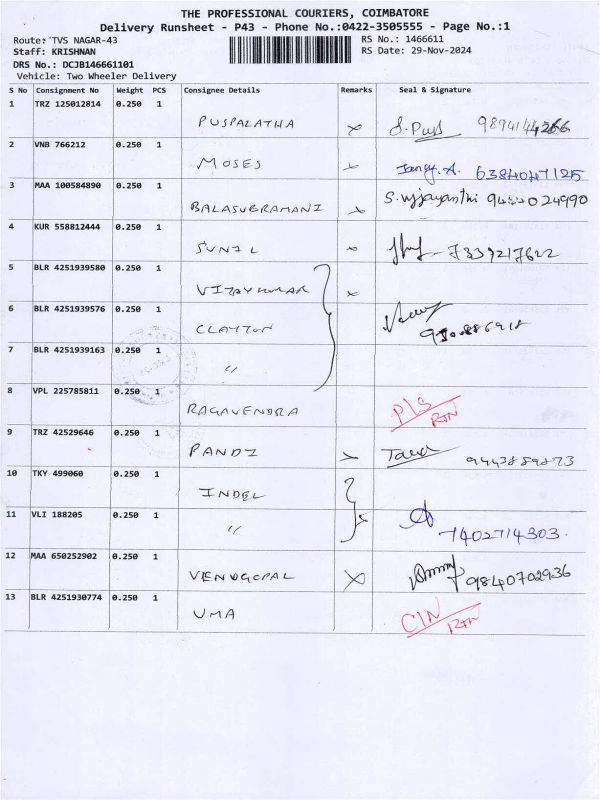 THE PROFESSIONAL COURIERS, COIMBATORE
Delivery Runsheet - P43 - Phone No.:0422-3505555 - Page No.:1
Route: TVS NAGAR-43 RS No.: 1466611
Staff: KRISHNAN RS Date: 29-Nov-2024
DRS No.: DCJB146661101
Vehicle: Two Wheeler Delivery
S No Consignment No Weight PCS Consignee Details Remarks Seal & Signature
1 TRZ 125012814 0.250 1
PUSPALATHA
2 VNB 766212 0.250 1
MOSES 6384047125
3 MAA 100584890 0.250 1
BALASUBRAMANI S.vijayanthi 9444024990
4 KUR 558812444 0.250 1
SUNIL 7339217622
5 BLR 4251939580 0.250 1
VIJAYKUMAR
6 BLR 4251939576 0.250 1
CLAYTON
7 BLR 4251939163 0.250 1
"
8 VPL 225785811 0.250 1
RAGAVENDRA P/S RTN
9 TRZ 42529646 0.250 1
PANDI 9443889873
10 TKY 499060 0.250 1
INDEL
11 VLI 188205 0.250 1
" 7402714303
12 MAA 650252902 0.250 1
VENOGOPAL 9840702936
13 BLR 4251930774 0.250 1
UMA C/N RTN